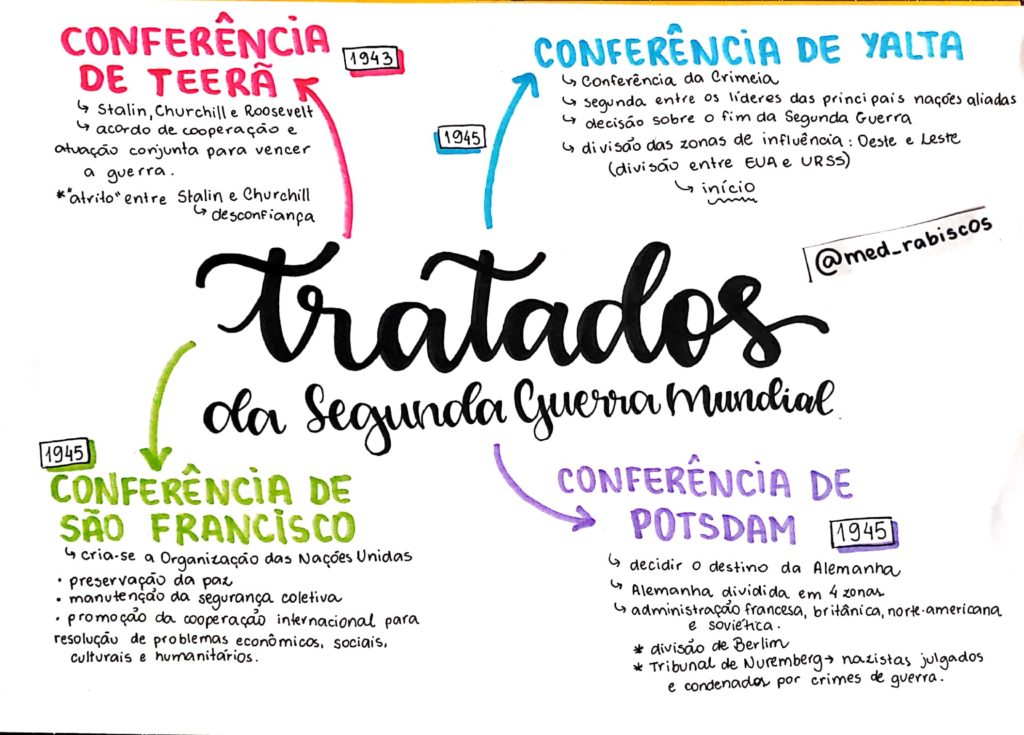 CONFERÊNCIA
DE TEERÃ
1943
↳ Stalin, Churchill e Roosevelt
↳ acordo de cooperação e
atuação conjunta para vencer
a guerra.
*"atrito" entre Stalin e Churchill
↳ desconfiança
CONFERÊNCIA DE YALTA
1945
↳ Conferência da Crimeia
↳ segunda entre os líderes das principais nações aliadas
↳ decisão sobre o fim da Segunda Guerra
↳ divisão das zonas de influência: Oeste e Leste
(divisão entre EUA e URSS)
↳ início
@med_rabiscos
tratados
da Segunda Guerra Mundial
1945
CONFERÊNCIA DE
SÃO FRANCISCO
↳ cria-se a Organização das Nações Unidas
• preservação da paz
• manutenção da segurança coletiva
• promoção da cooperação internacional para
resolução de problemas econômicos, sociais,
culturais e humanitários.
CONFERÊNCIA DE
POTSDAM
1945
↳ decidir o destino da Alemanha
↳ Alemanha dividida em 4 zonas
↳ administração francesa, britânica, norte-americana
e soviética.
* divisão de Berlim
* Tribunal de Nuremberg → nazistas julgados
e condenados por crimes de guerra.